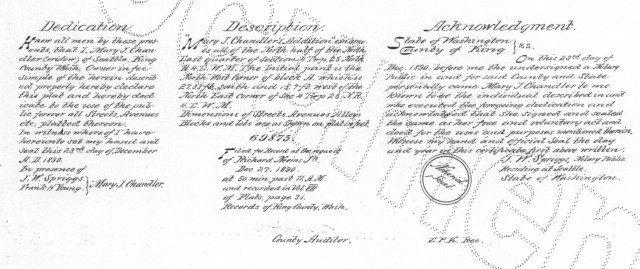 Dedication.
Know all men by these pres-
ents, that I, Mary J. Chan-
dler (widow) of Seattle, King
County Wash, Owner in fee
simple of the herein describ-
ed property hereby declare
this plat and hereby dedi-
cate to the use of the pub-
lic forever all Streets, Avenues
etc. platted thereon.
In witness whereof I have
hereunto set my hand and
seal this 23rd day of December
A.D. 1890.
In presence of
J. W. Spriggs
Frank H. Young.
Mary J. Chandler.
Description.
"Mary J. Chandler's Addition"
is all of the North half of the North
East quarter of Section 4 Twp 25. North
R. 4. E. W. M. The Initial point is the
North West corner of block A. which is
south and west of the
North East corner of Sec 4 Twp 25. N. R.
4. E. W. M.
Dimensions of Streets, Avenues, Alleys
Blocks and lots are as shown on plat in feet.
69875.
Filed for Record at the request
of Richard
Dec 27. 1890.
at 50 min. past 11 A.M.
and recorded in Vol
of Plats, page 31.
Records of King County, Wash.
County Auditor.
Acknowledgment.
State of Washington
County of King } S.S.
On this 23rd day of
Dec. 1890. before me the undersigned a Notary
Public in and for said County and State
personally came Mary J. Chandler to me
known to be the individual described in and
who executed the foregoing dedication and
acknowledged that She signed and sealed
the same as her free and voluntary act and
deed for the uses and purposes mentioned therein.
Witness my hand and official Seal the day
and year in this certificate first above written.
J. W. Spriggs, Notary Public
Residing at Seattle,
State of Washington.
Notarial
Seal